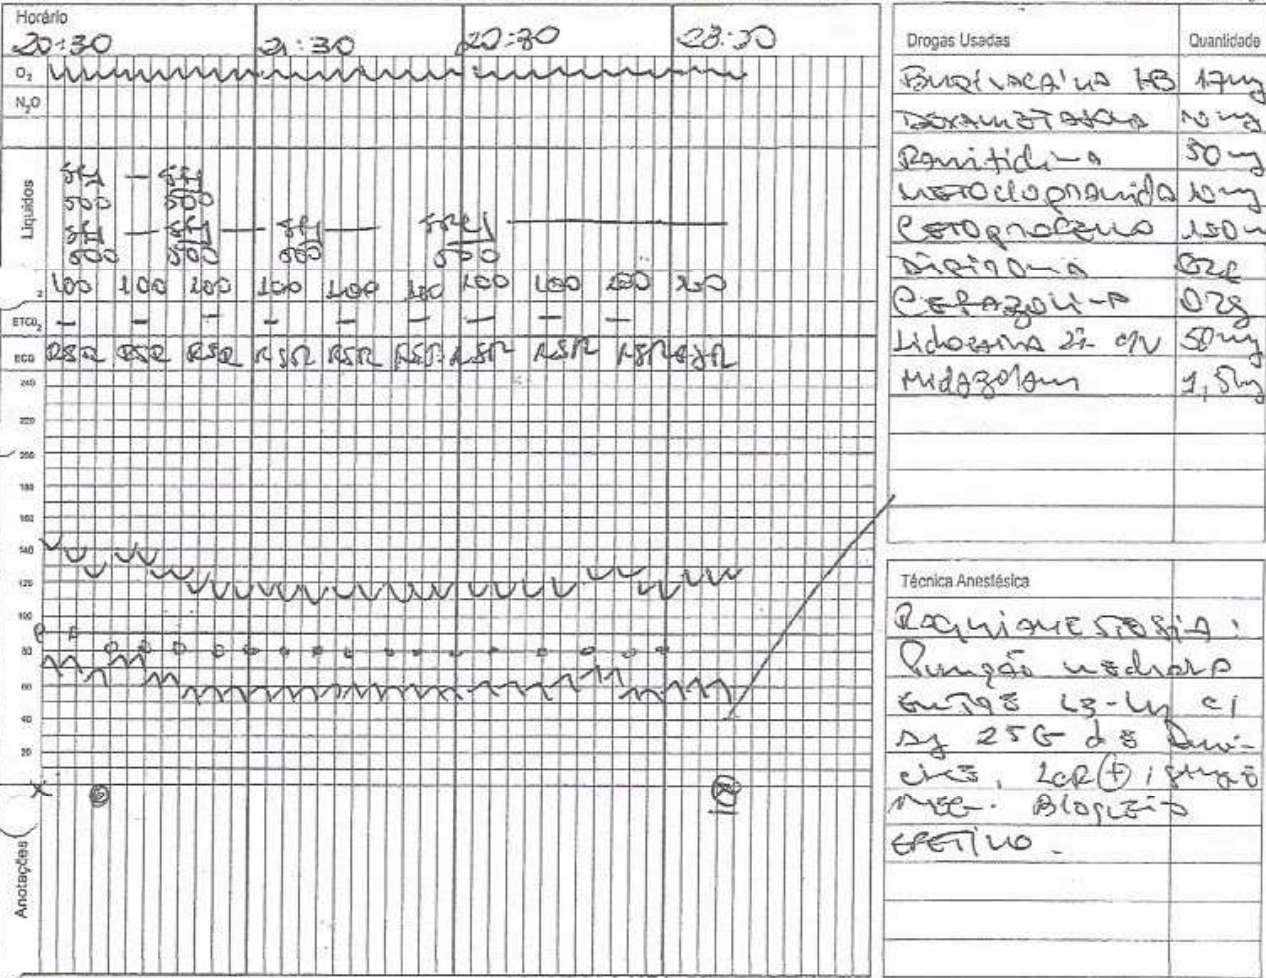 Horário
20:30 21:30 22:30 23:30
O₂
N₂O
Líquidos
SF1 — SF1
500 500
SF1 — SF1 — SF1 — SRL1
500 500 500 500
₂ 100 100 100 100 100 100 100 100 100 100
ETCO₂ — — — — — — — — —
ECG RSR RSR RSR RSR RSR RSR RSR RSR RSR RSR
240
220
200
180
160
140
120
100
80
60
40
20
Anotações
Drogas Usadas Quantidade
Bupivacaína HB 17mg
Dexametasona 10mg
Ranitidina 50mg
Metoclopramida 10mg
Cetoprofeno 100m
Dipirona 02g
Cefazolina 02g
Lidocaina 2% c/v 50mg
Midazolam 1,5mg
Técnica Anestésica
Raquianestesia:
Punção mediana
entre L3-L4 c/
ag 25G
LCR (+)
Bloqueio
efetivo.